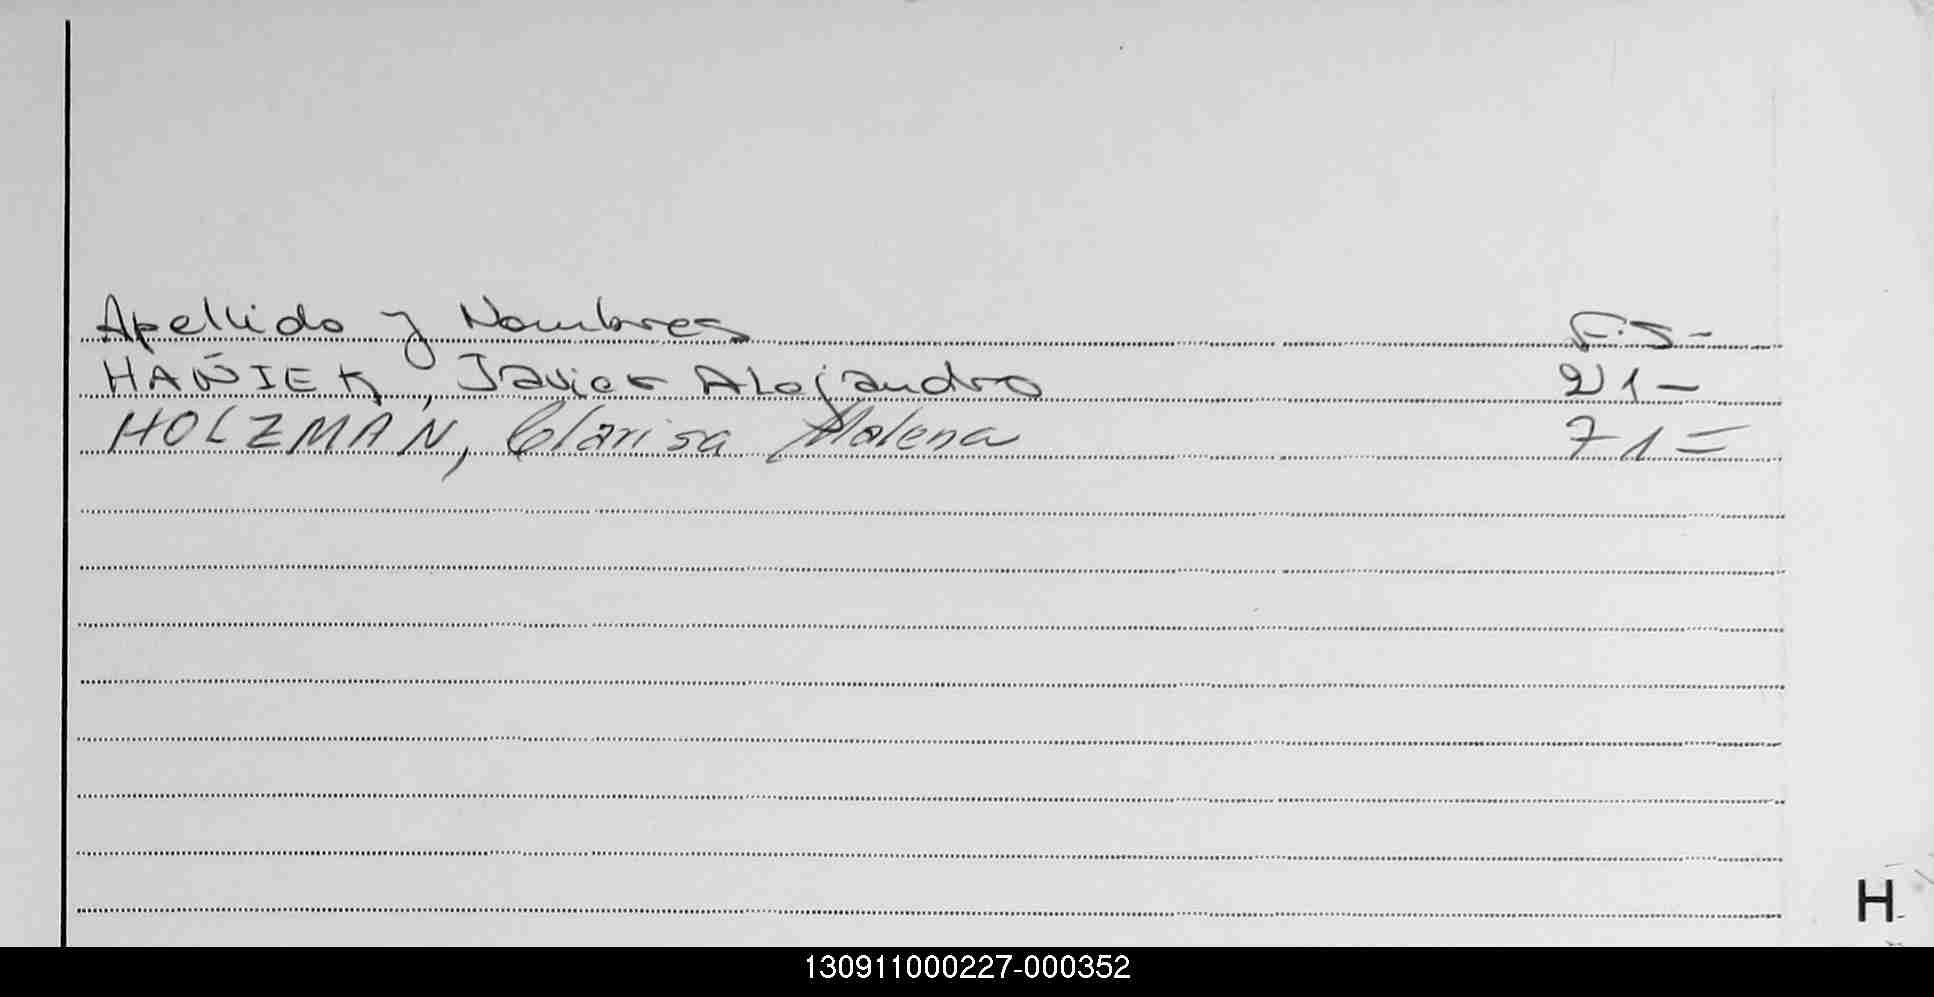 Apellido y Nombres FS-
HAÑIEK, Javier Alejandro 21-
HOLZMAN, Clarisa Malena 71=
H
130911000227-000352